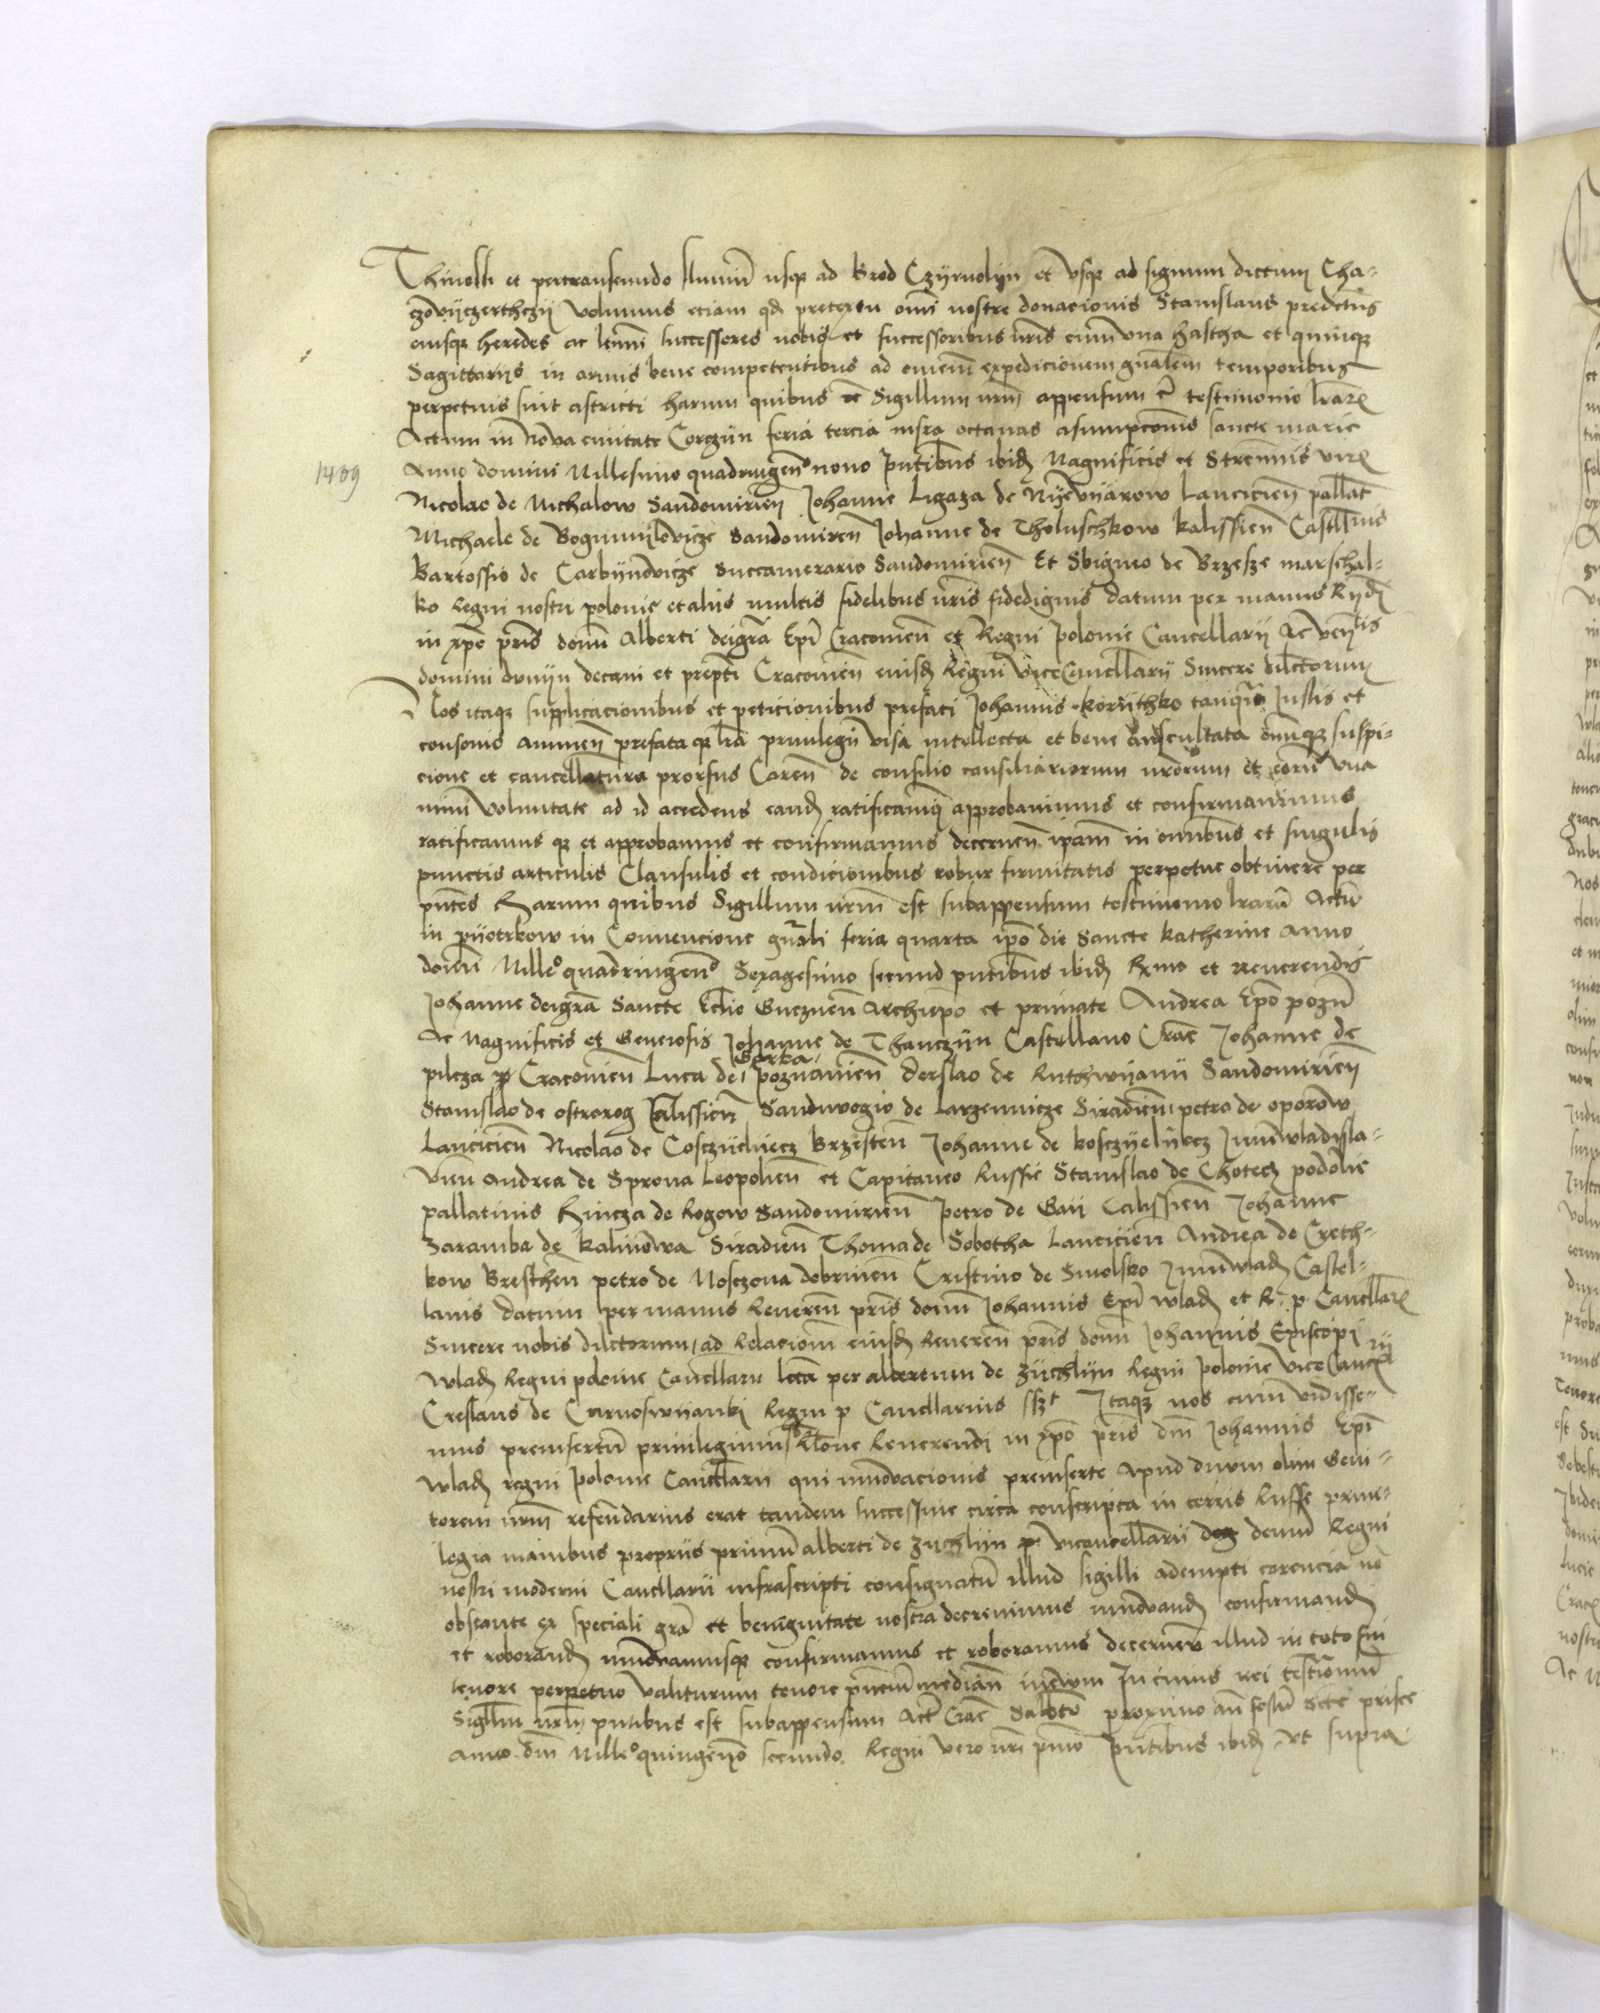 Thinolli et pertranseundo flumen usqz ad Brod Czyrnolyn et vsqz ad signum dictum Cha-
zoviiczerthczii volumus etiam qd pretextu omi nostre donacionis Stanislaus predictus
eiusqz heredes ac letimi successores nobis et successoribus nris cum una hastha et quinqz
Sagittariis in armis bene competentibus ad omnem expedicionem gnalem temporibus
perpetuis sint astricti harum quibus Sigillum nrm appensum e testimonio lrarz
Actum in Nova civitate Corczin feria tercia infra octavas asumpcionis sancte marie
1409
Anno domini Millesimo quadringeno nono pntibus ibidz Magnificis et Strennuis virz
Nicolao de Michalow Sandomirien Johanne Ligaza de Nyewyarow Lancicien pallat
Michaele de Bogumylovicze Sandomiren Johanne de Tholuschkow Kalissien Castllnis
Bartossio de Carbynovicze Succamerario Sandomirien Et Sbigneo de Brzesze marschal-
ko Regni nostri polonie et aliis multis fidelibus nris fidedignis datum per manus Rndi
in xpo pris domi Alberti dei gra Epi Cracovien et Regni polonie Cancellarii Ac venlis
domini dunyn decani et prepti Cracovien eiusdz Regni ViceCancellarii Sincere dilectorum
Nos itaqz supplicacionibus et peticionibus prefati Johannis korythko tamqz Justis et
consonis annuen prefata qz lra privilegii visa intellecta et bene auscultata omniqz suspi-
cione et cancellatura prorsus Caren de consilio consiliariorum nrorum et eoru una
nimi voluntate ad id accedens eandz ratificamusqz approbavimus et confirmavimus
ratificamus qz et approbamus et confirmamus decernen ipam in omnibus et singulis
punctis articulis Clausulis et condicionibus robur firmitatis perpetue obtinere per
pntes Harum quibus Sigillum nrm est subappensum testimonio lrarum Actu
in pyotrkow in Convencione gnali feria quarta ipo die Sancte Katherine Anno
domi Milleo quadringeno Sexagesimo secundo pntibus ibidz Rmo et reverendis
Johanne dei gra Sancte Eclie Gneznen Archiepo et primate Andrea Epo pozn
Ac Magnificis et Generosis Johanne de Thanczyn Castellano Crac Johanne de
pilcza p Cracovien Luca de Gorka poznanien derslao de Rithwyany Sandomirien
Stanislao de ostrorog Calissien Sandivogio de Lazennicze Siradien petro de oporow
Lancicien Nicolao de Cosczyelyecz Brzesten Johanne de kosczyelyecz Junivladisla-
vien Andrea de Sprova Leopolien et Capitaneo Russie Stanislao de Chotecz podolie
pallatinis Hincza de Rogow Sandomirien petro de Gaii Calissien Johanne
Zaramba de Kalinowa Siradien Thoma de Sobotha Lancicien Andrea de Creth-
kow Bresthen petro de Mosczona dobrinen Cristino de Smolsko Junivladz Castel-
lanis datum per manus Reveren pris domi Johannis Epi wladz et R p Cancllarz
Sincere nobis dilectorum ad Relacionem eiusdz Reveren pris domi Johannis Episcopi
wladz Regni polonie Cancellarii lecta per albertum de Zychlyn Regni polonie ViceCancrii
Creslaus de Curnoswyanki Regni p Cancllarius sszt Itaqz nos cum vidisse-
mus preinsertu privilegium Rlone Reverendi in xpo pris dni Johannis Epi
wladz regni polonie Cancellarii qui innovacionis preinserte apud divum olim Geni-
torem nrm referendarius erat tandem successive circa conscripta in terris Russie privi-
legia manibus propriis primum alberti de Zychlyn p vicecancellarii demu Regni
nostri moderni Cancllarii infrascripti consignatu illud sigilli adempti carencia no
obstante ex speciali gra et benignitate nostra decrevimus innovandz confirmandz
et roborandz innovamusqz confirmamus et roboramus decernen illud in toto sui
tenore perpetuo valiturum tenore pncium median in evum In cuius rei testimoniu
Sigillm nrm pntibus est subappensum Act Crac Sabbto proximo an festu Scte prisce
anno dni Milleo quingeno secundo Regni vero nri pmo pntibus ibidz ut supra